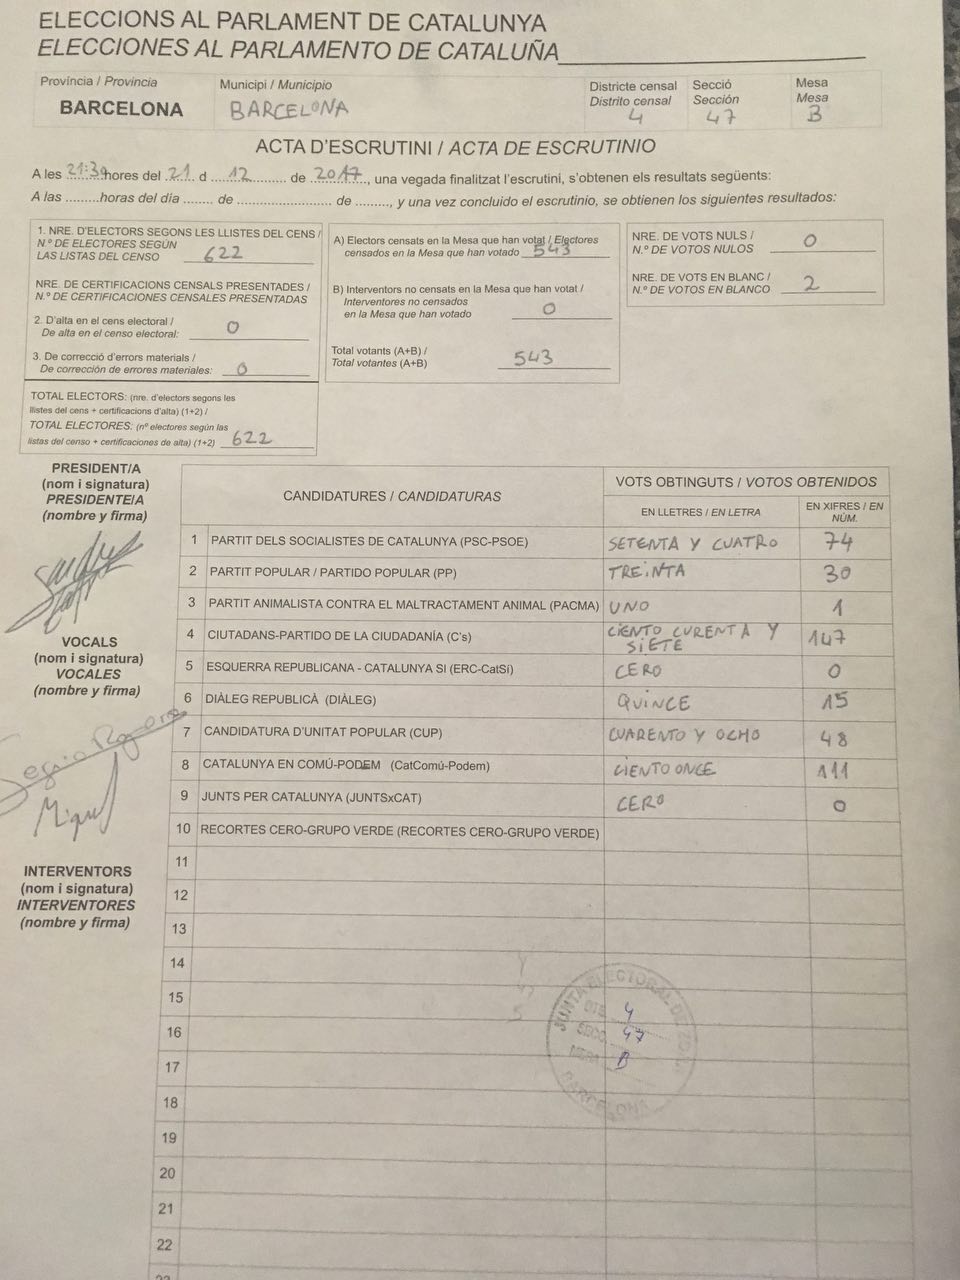 ELECCIONS AL PARLAMENT DE CATALUNYA
ELECCIONES AL PARLAMENTO DE CATALUÑA
Província / Provincia
BARCELONA
Municipi / Municipio
BARCELONA
Districte censal
Distrito censal
4
Secció
Sección
47
Mesa
Mesa
B
ACTA D'ESCRUTINI / ACTA DE ESCRUTINIO
A les 21:30 hores del 21 d 12 de 2017, una vegada finalitzat l'escrutini, s'obtenen els resultats següents:
A las .........horas del día ........ de ......................... de ........., y una vez concluido el escrutinio, se obtienen los siguientes resultados:
1. NRE. D'ELECTORS SEGONS LES LLISTES DEL CENS /
N.º DE ELECTORES SEGÚN
LAS LISTAS DEL CENSO 622
NRE. DE CERTIFICACIONS CENSALS PRESENTADES /
N.º DE CERTIFICACIONES CENSALES PRESENTADAS
2. D'alta en el cens electoral /
De alta en el censo electoral: 0
3. De correcció d'errors materials /
De corrección de errores materiales: 0
TOTAL ELECTORS: (nre. d'electors segons les
llistes del cens + certificacions d'alta) (1+2) /
TOTAL ELECTORES: (nº electores según las
listas del censo + certificaciones de alta) (1+2) 622
A) Electors censats en la Mesa que han votat / Electores
censados en la Mesa que han votado 543
B) Interventors no censats en la Mesa que han votat /
Interventores no censados
en la Mesa que han votado 0
Total votants (A+B) /
Total votantes (A+B) 543
NRE. DE VOTS NULS /
N.º DE VOTOS NULOS 0
NRE. DE VOTS EN BLANC /
N.º DE VOTOS EN BLANCO 2
PRESIDENT/A
(nom i signatura)
PRESIDENTE/A
(nombre y firma)
VOCALS
(nom i signatura)
VOCALES
(nombre y firma)
Miguel
INTERVENTORS
(nom i signatura)
INTERVENTORES
(nombre y firma)
CANDIDATURES / CANDIDATURAS
VOTS OBTINGUTS / VOTOS OBTENIDOS
EN LLETRES / EN LETRA
EN XIFRES / EN
NÚM.
1 PARTIT DELS SOCIALISTES DE CATALUNYA (PSC-PSOE) SETENTA Y CUATRO 74
2 PARTIT POPULAR / PARTIDO POPULAR (PP) TREINTA 30
3 PARTIT ANIMALISTA CONTRA EL MALTRACTAMENT ANIMAL (PACMA) UNO 1
4 CIUTADANS-PARTIDO DE LA CIUDADANÍA (C's) CIENTO CURENTA Y SIETE 147
5 ESQUERRA REPUBLICANA - CATALUNYA SI (ERC-CatSí) CERO 0
6 DIÀLEG REPUBLICÀ (DIÀLEG) QUINCE 15
7 CANDIDATURA D'UNITAT POPULAR (CUP) CUARENTO Y OCHO 48
8 CATALUNYA EN COMÚ-PODEM (CatComú-Podem) CIENTO ONCE 111
9 JUNTS PER CATALUNYA (JUNTSxCAT) CERO 0
10 RECORTES CERO-GRUPO VERDE (RECORTES CERO-GRUPO VERDE)
11
12
13
14
15
16
17
18
19
20
21
22
JUNTA ELECTORAL DE
4
SECC. 47
MESA B
BARCELONA